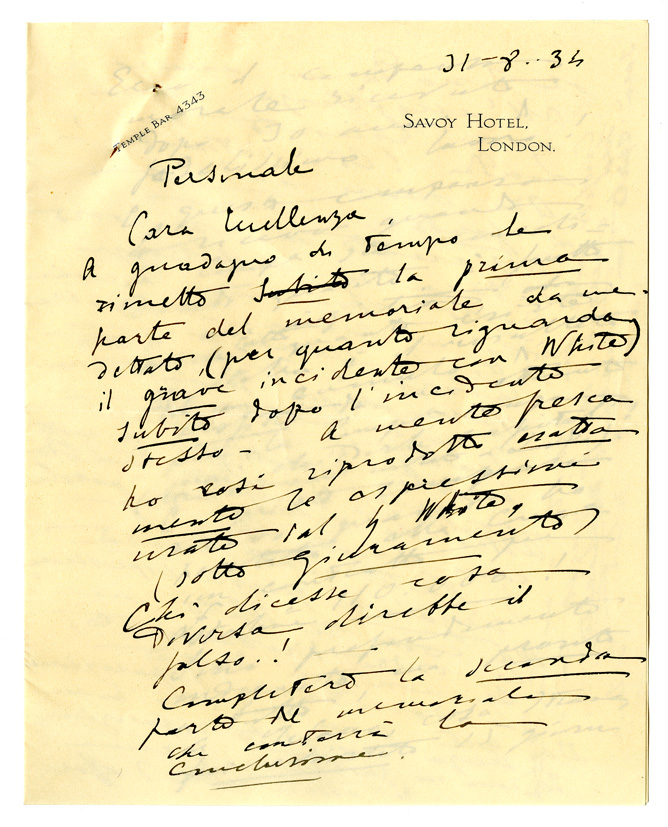 31-8..34
TEMPLE BAR 4343
SAVOY HOTEL,
LONDON.
Personale
Cara Eccellenza,
A guadagno di tempo le
rimetto subito la prima
parte del memoriale da me
dettato (per quanto riguarda
il grave incidente con White)
subito dopo l'incidente
stesso - A mente fresca
ho così riprodotto esatta
mente le espressioni
usate dal White,
(sotto giuramento)
Chi dicesse cosa
diversa direbbe il
falso..!
Completerò la seconda
parte del memoriale
che conterrà la
conclusione.